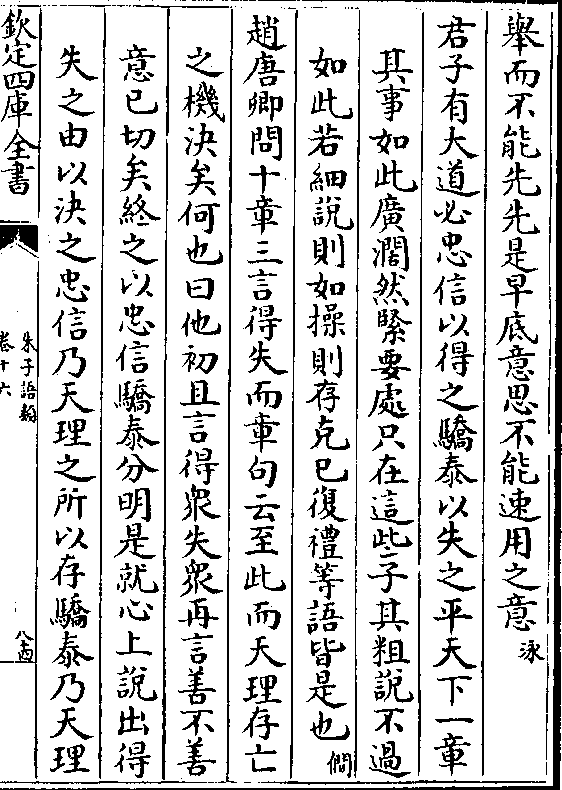 舉而不能先先是早底意思不能速用之意 泳
君子有大道必忠信以得之驕泰以失之平天下一章
其事如此廣濶然緊要處只在這些子其粗說不過
如此若細說則如操則存克己復禮等語皆是也 僴
趙唐卿問十章三言得失而章句云至此而天理存亡
之機決矣何也曰他初且言得眾失眾再言善不善
意已切矣終之以忠信驕泰分明是就心上說出得
失之由以決之忠信乃天理之所以存驕泰乃天理
欽定四庫全書
朱子語類
卷十六